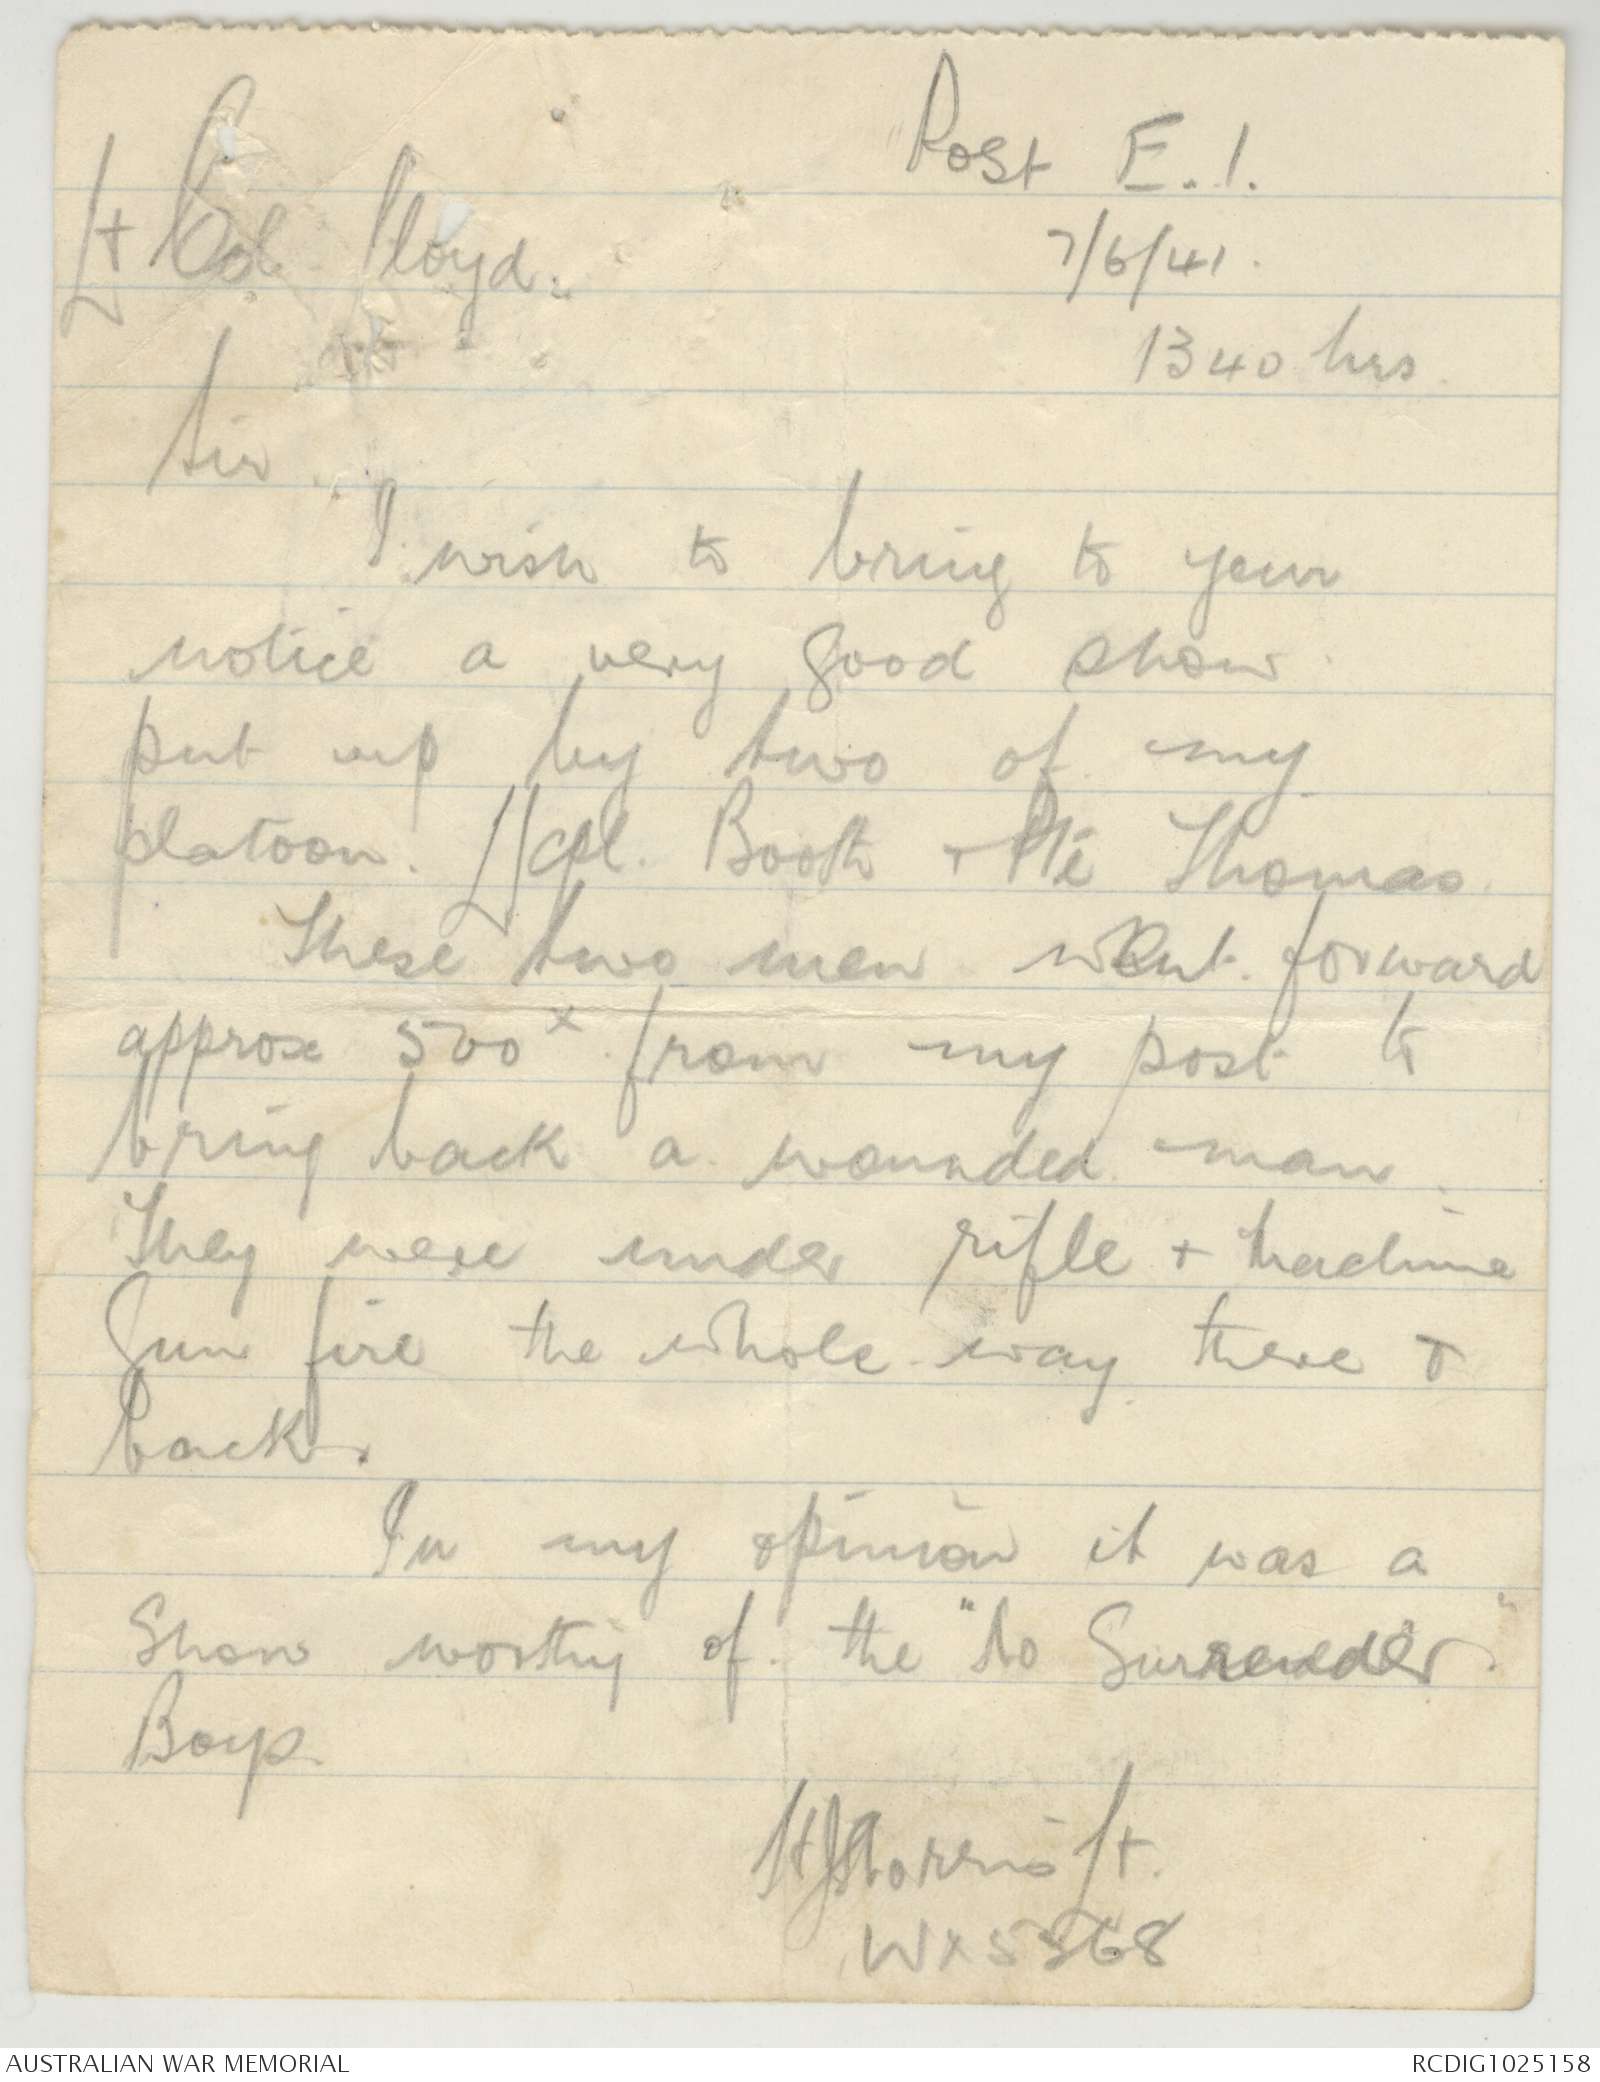 Post E.1.
Lt Col Lloyd.
7/6/41.
1340 hrs.
Sir
I wish to bring to your
notice a very good show
put up by two of my
platoon. L/cpl. Booth + Pte Thomas.
These two men went forward
approx 500x from my post to
bring back a wounded man.
They were under rifle + machine
Gun fire the whole way there &
back.
In my opinion it was a
Show worthy of the "No Surrender"
Boys.
Lt.
WX5368
AUSTRALIAN WAR MEMORIAL
RCDIG1025158